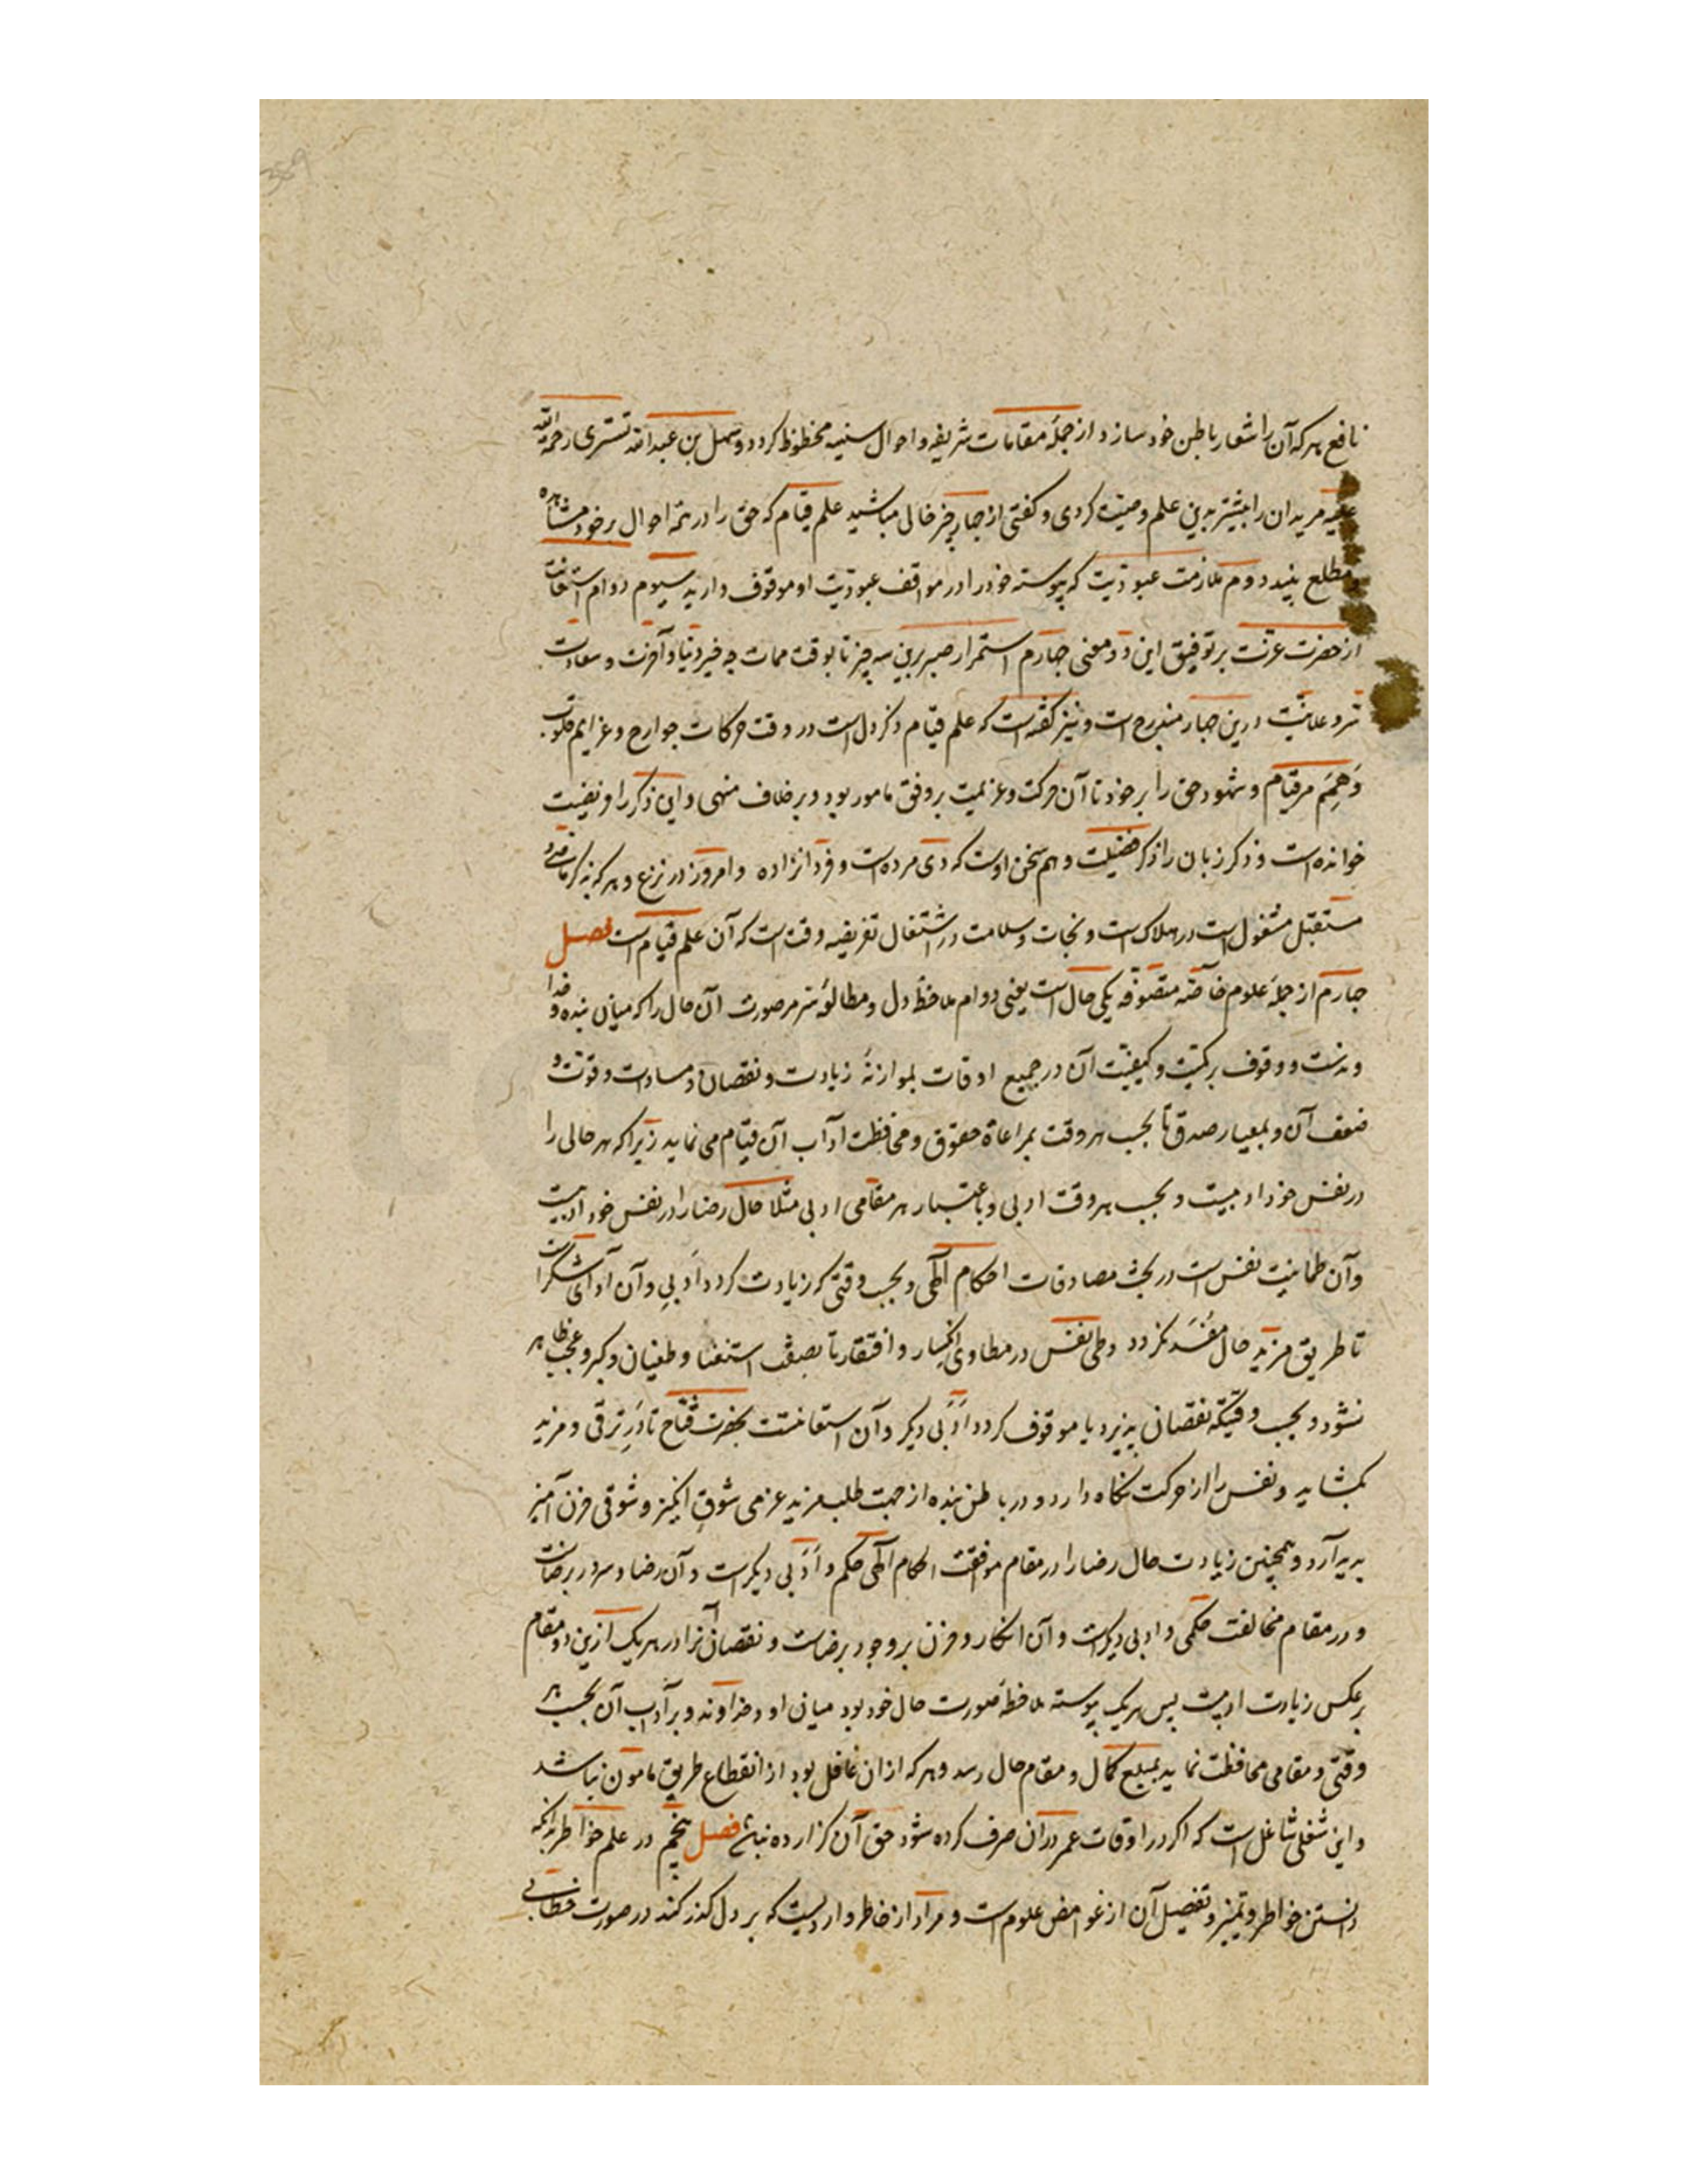 نافع هر که آن را شعار باطن خود سازد از جملهٔ مقامات شریفه و احوال سنیه محظوظ گردد و سهل بن عبدالله تستری رحمه الله
علیه مریدان را بیشتر بدین علم وصیت کردی و گفتی از چهار چیز خالی مباشید علم قیام که حق را در همه احوال بر خود مشاهد
و مطلع بینید دوم ملازمت عبودیت که پیوسته خود را در مواقف عبودیت او موقوف دارید سیوم دوام استعانت
از حضرت عزت بر توفیق این دو معنی چهارم استمرار صبر برین سه چیز تا بوقت ممات چه خیر دنیا و آخرت و سعادت
سر و علانیت درین چهار مندرج است و نیز گفته است که علم قیام ذکر دل است در وقت حرکات جوارح و عزایم قلوب
وَهِمَم مر قیام و شهود حق را بر خود تا آن حرکت و عزیمت بر وفق مامور بود و بر خلاف منهی و این ذکر را فریضت
خوانده است و ذکر زبان را ذکر فضیلت و هم سخن اوست که دی مرده است و فردا نزاده و امروز در نزع و هر که بذکر ماضی و
مستقبل مشغول است در هلاک است و نجات و سلامت در اشتغال بفریضه وقت است که آن علم قیام است فصل
چهارم از جمله علوم خاصّه متصوّفه یکی حال است یعنی دوام ملاحظه دل و مطالعهٔ سر مر صورت آن حال را که میان بنده و خدا
وندست و وقوف بر کمیّت و کیفیّت آن در جمیع اوقات بموازنهٔ زیادت و نقصان و مساوات و قوّت و
ضعف آن و بمعیار صدق تا بحسب هر وقت بمراعاة حقوق و محافظت آداب آن قیام می نماید زیرا که هر حالی را
در نفس خود ادبیست و بحسب هر وقت ادبی و باعتبار هر مقامی ادبی مثلا حال رضا را در نفس خود ادبیست
وآن طمانینت نفس است در تحت مصادفات احکام آلهی و بحسب وقتی که زیادت گردد اَدَبی و آن ادای شکر است
تا طریق مزید حال مُنسَد نگردد و طی نفس در مطاوی انکسار و افتقار تا بصفت استغنا و طغیان و کبر و عجب ظاهر
نشود و بحسب وقتیکه نقصانی پذیرد یا موقوف گردد اَدَبی دیگر و آن استعانتست بحضرت فتّاح تا دَرِ ترقی و مزید
بگشاید و نفس را از حرکت نگاه دارد و در باطن بنده از جهت طلب مزید عزمی شوق انگیز و شوقی حزن آمیز
پدید آرد و همچنین زیادت حال رضا را در مقام موافقت احکام آلهی حکم و اَدَبی دیگر است و آن رضا و سرور برضاست
و در مقام مخالفت حکمی و ادبی دیگرست و آن انکار و حزن بر وجود رضاست و نقصان آنرا در هر یک ازین دو مقام
بر عکس زیادت ادبیست پس هر یک پیوسته ملاحظهٔ صورت حال خود بود میان او و خداوند و بر آداب آن بحسب هر
وقتی و مقامی محافظت نماید بمبلغ کمال و مقام حال رسد و هر که از ان غافل بود از انقطاع طریق مامون نباشد
و این شغلی شاغل است که اگر در اوقات عمر در ان صرف کرده شود حق آن گزارده نباشد فصل پنجم در علم خواطر بدانکه
دانستن خواطر و تمییز و تفصیل آن از غوامض علوم است و مراد از خاطر واردیست که بر دل گذر کند در صورت خطابی